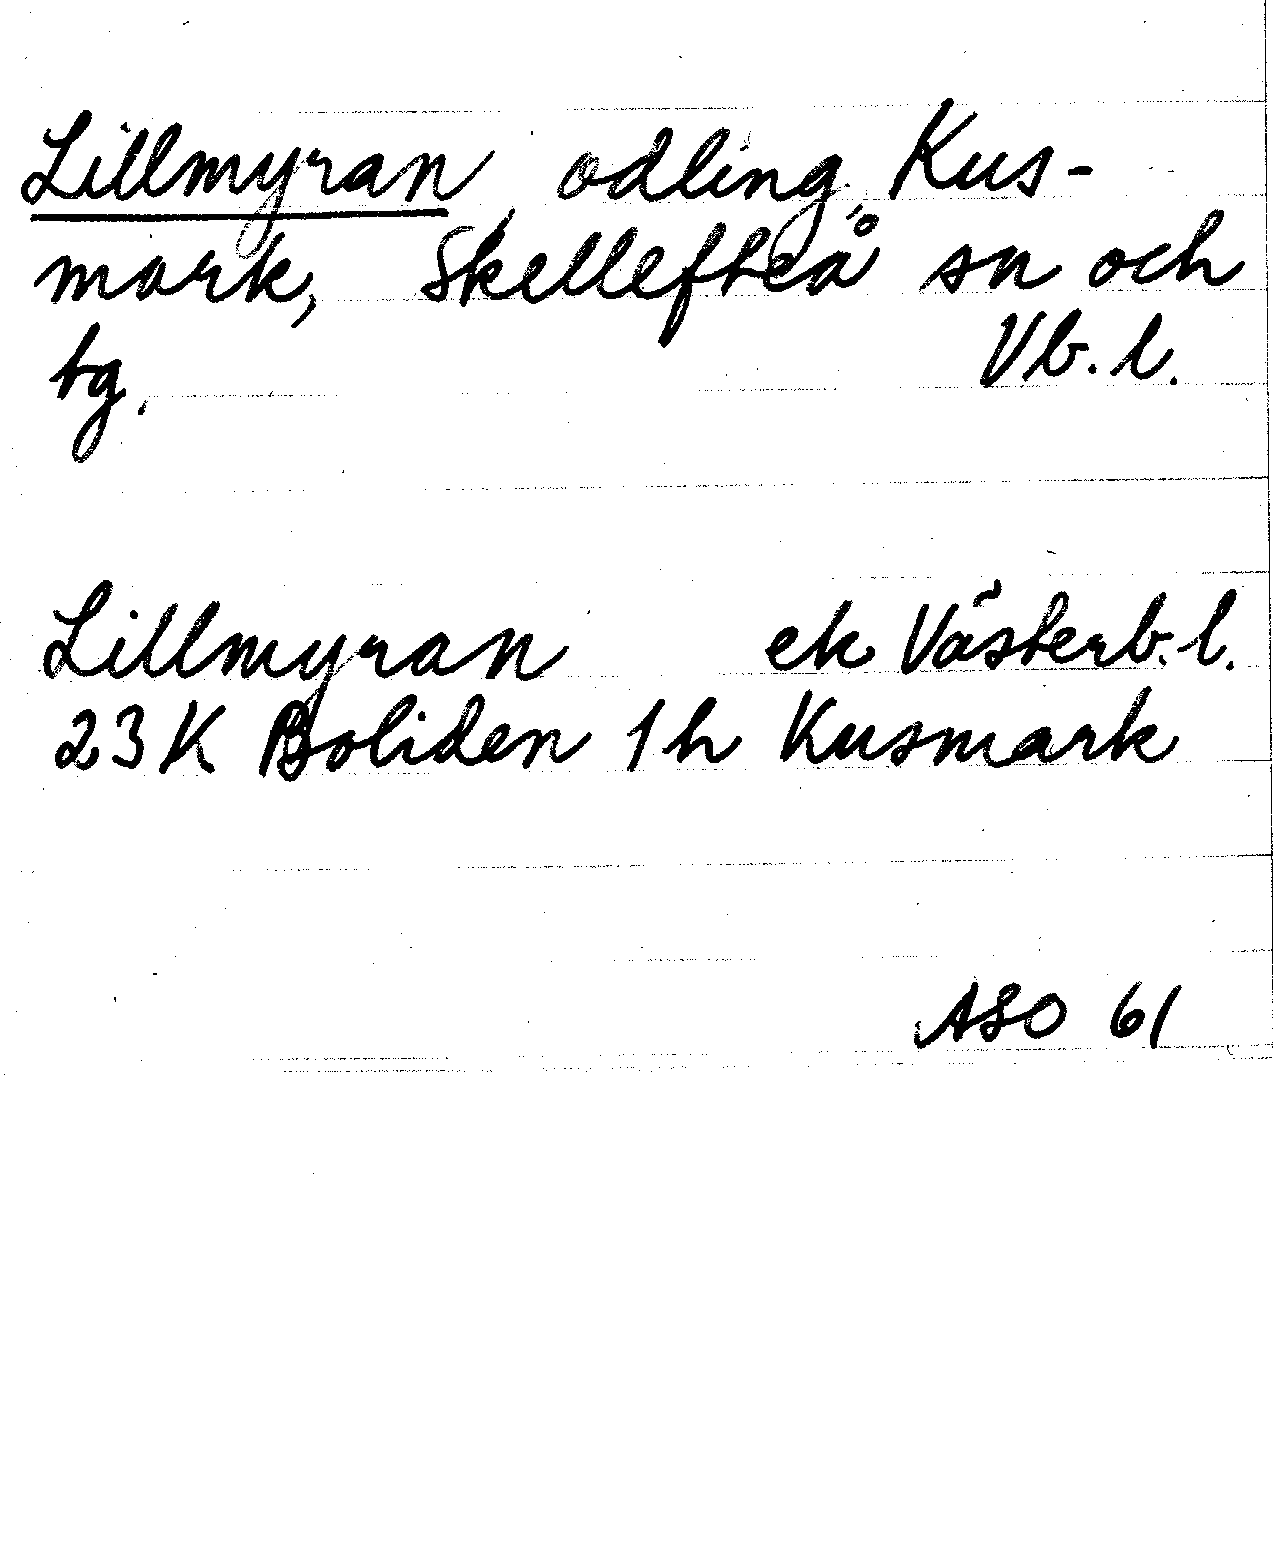 Lillmyran, odling, Kus-
mark, Skellefteå sn och
tg. Vb. l.
Lillmyran ek Västerb. l.
23K Boliden 1h Kusmark
ASO 61